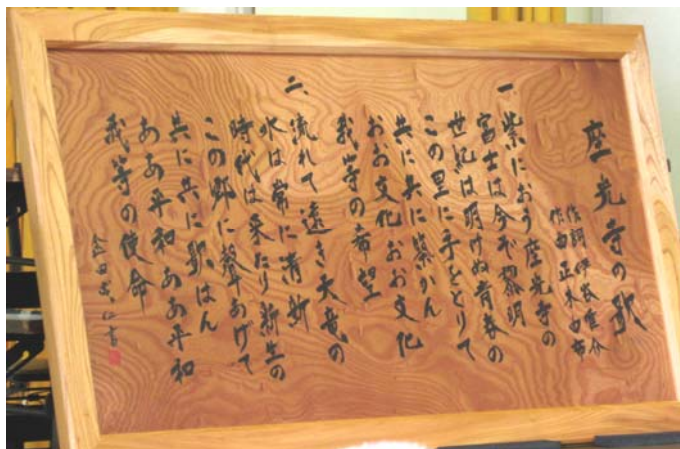 座光寺の歌
作詞
作曲 正木
一、紫におう座光寺の
富士は今ぞ黎明
世紀は明けぬ青春の
この里に手をとりて
共に共に築かん
おお文化おお文化
我等の希望
二、流れて遠き天竜の
水は常に清新
時代は来たり新生の
この郷に聲あげて
共に共に歌はん
ああ平和ああ平和
我等の使命